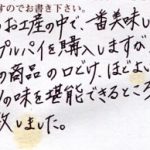 すのでお書き下さい。
のお土産の中で、一番美味し
プルパイを購入しますが
の商品の口どけ、ほどよい
の味を堪能できるところ
致しました。